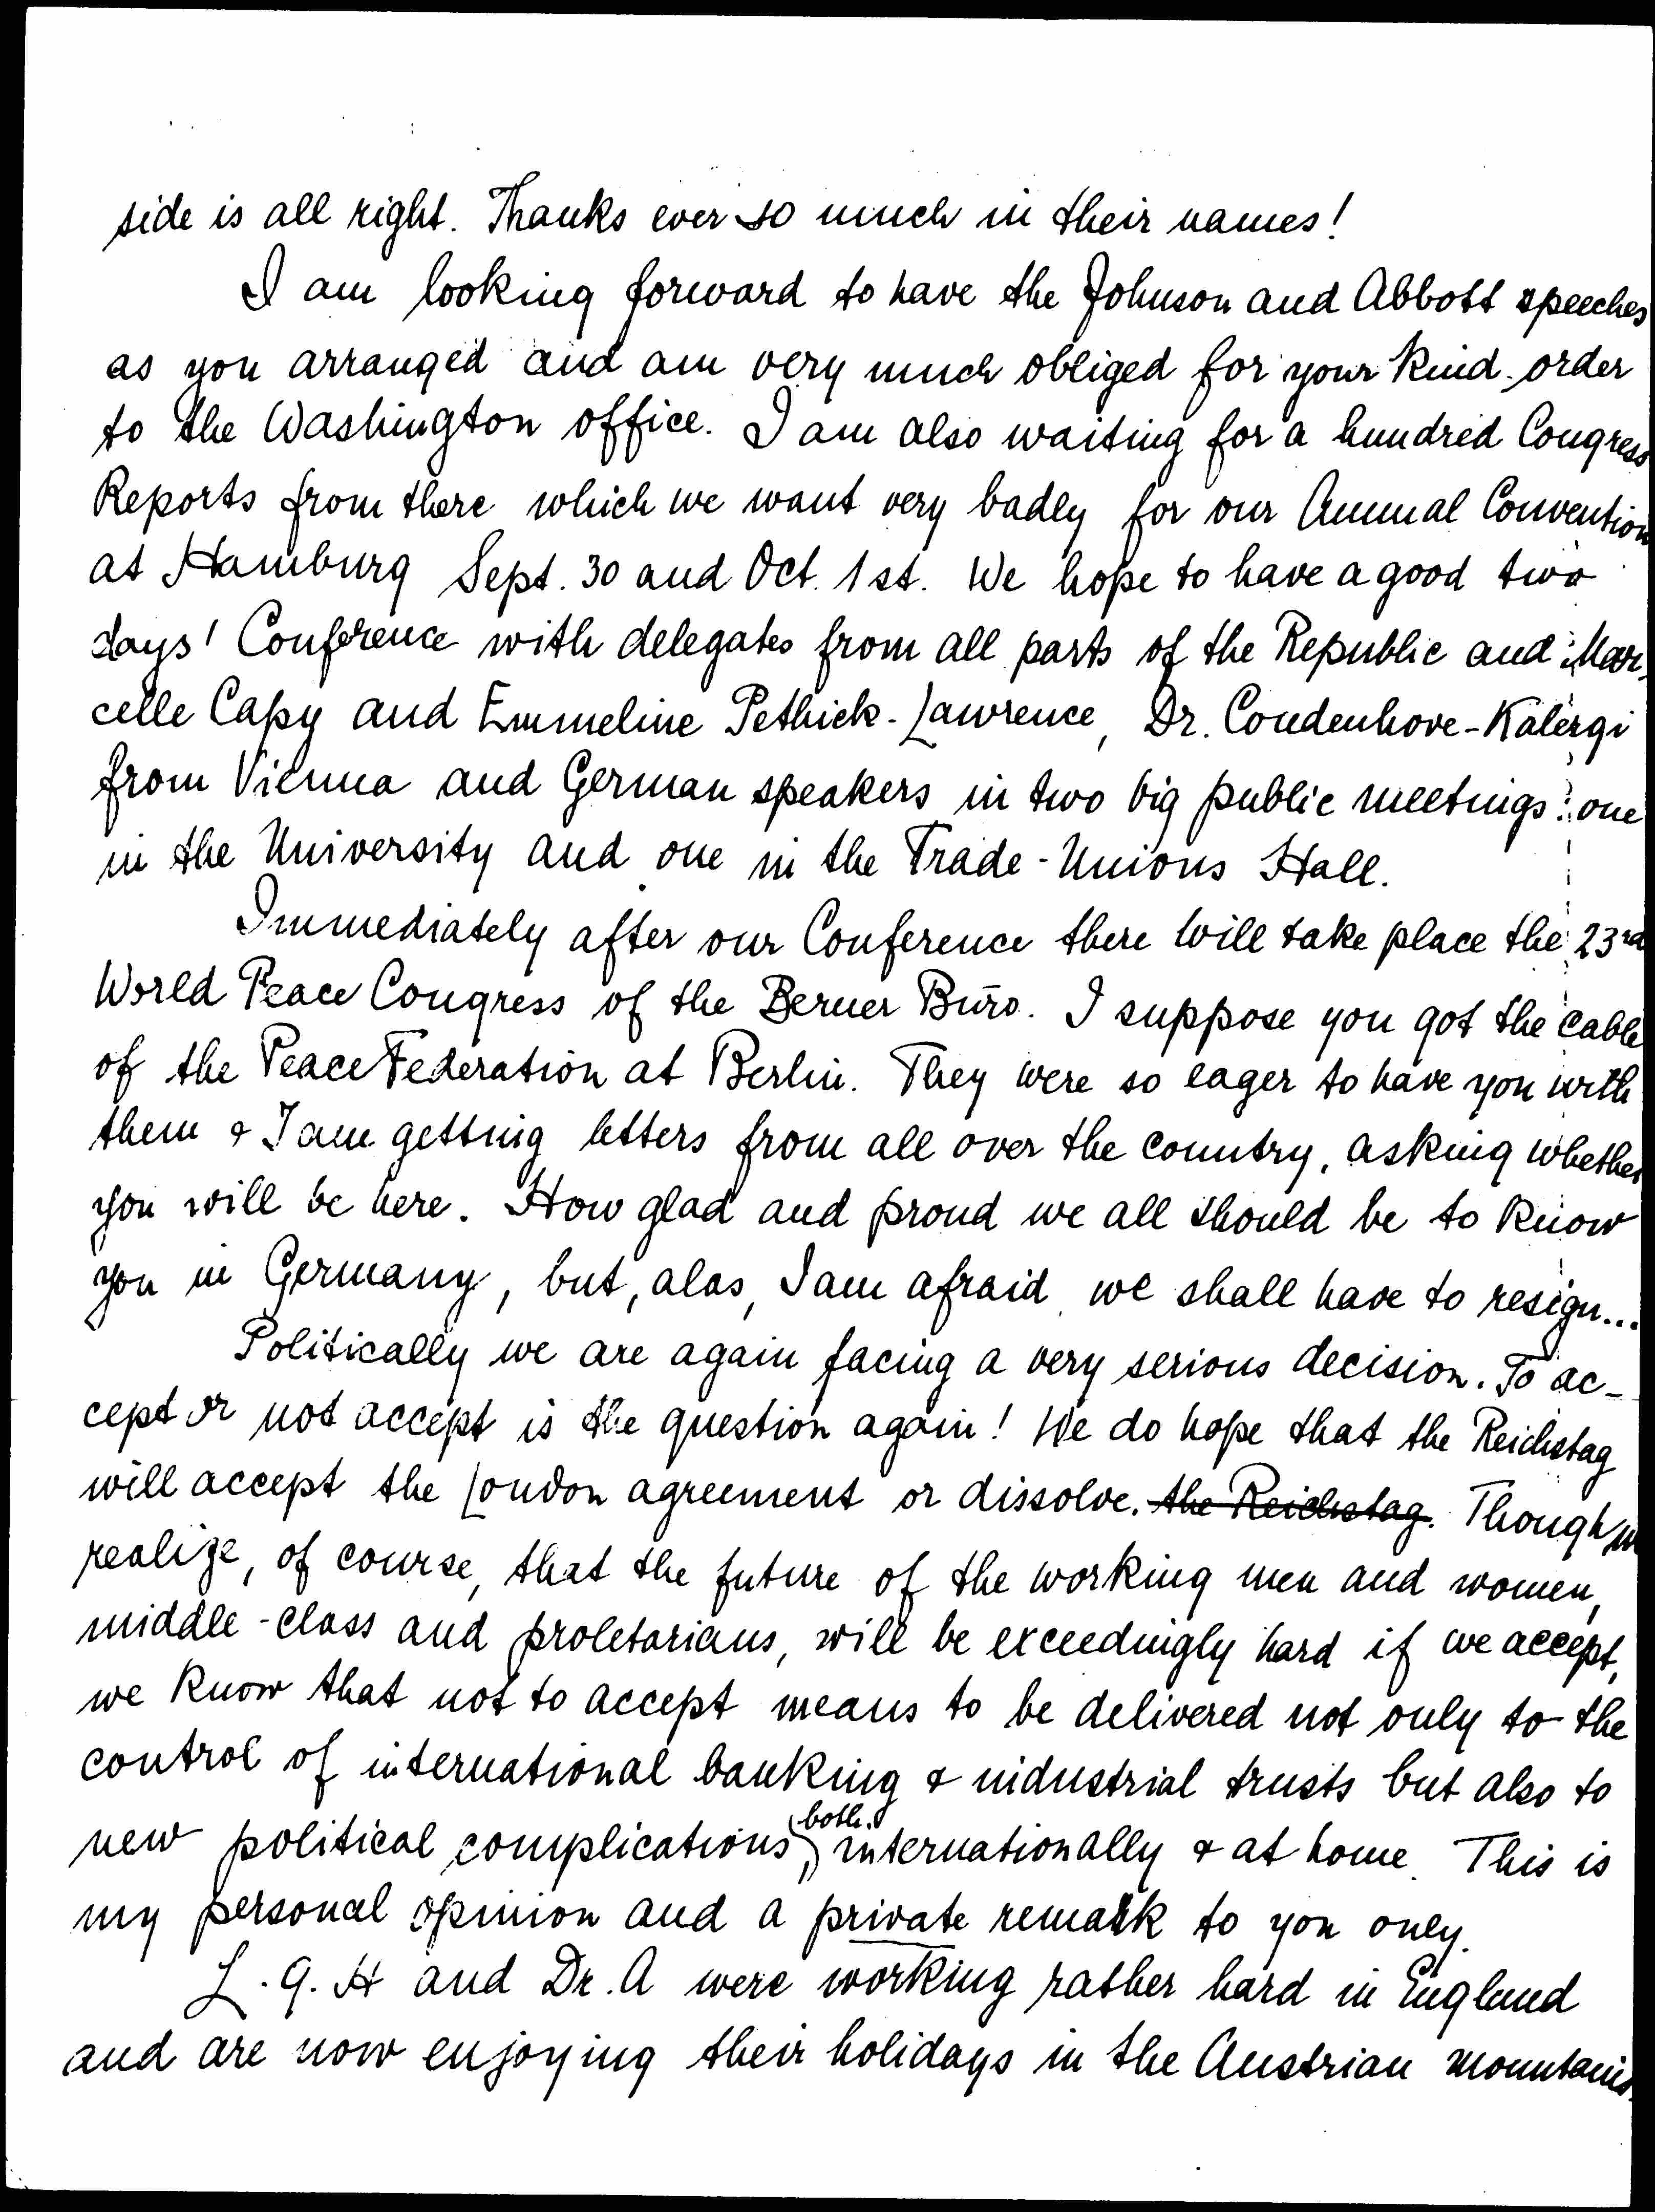 side is all right. Thanks ever so much in their names!
I am looking forward to have the Johnson and Abbott speeches
as you arranged and am very much obliged for your kind order
to the Washington office. I am also waiting for a hundred Congress
Reports from there which we want very badly for our Annual Convention
at Hamburg Sept. 30 and Oct. 1st. We hope to have a good two
days' Conference with delegates from all parts of the Republic and Mar-
celle Capy and Emmeline Pethick-Lawrence, Dr. Coudenhove-Kalergi
from Vienna and German speakers in two big public meetings: one
in the University and one in the Trade-Unions Hall.
Immediately after our Conference there will take place the 23rd
World Peace Congress of the Berner Büro. I suppose you got the cable
of the Peace Federation at Berlin. They were so eager to have you with
them & I am getting letters from all over the country, asking whether
you will be here. How glad and proud we all should be to know
you in Germany, but, alas, I am afraid we shall have to resign...
Politically we are again facing a very serious decision. To ac-
cept or not accept is the question again! We do hope that the Reichstag
will accept the London agreement or dissolve. the Reichstag. Though we
realize, of course, that the future of the working men and women,
middle-class and proletarians, will be exceedingly hard if we accept,
we know that not to accept means to be delivered not only to the
control of international banking & industrial trusts but also to
new political complications, both internationally & at home. This is
my personal opinion and a private remark to you only.
L. G. H and Dr. A were working rather hard in England
and are now enjoying their holidays in the Austrian mountains.